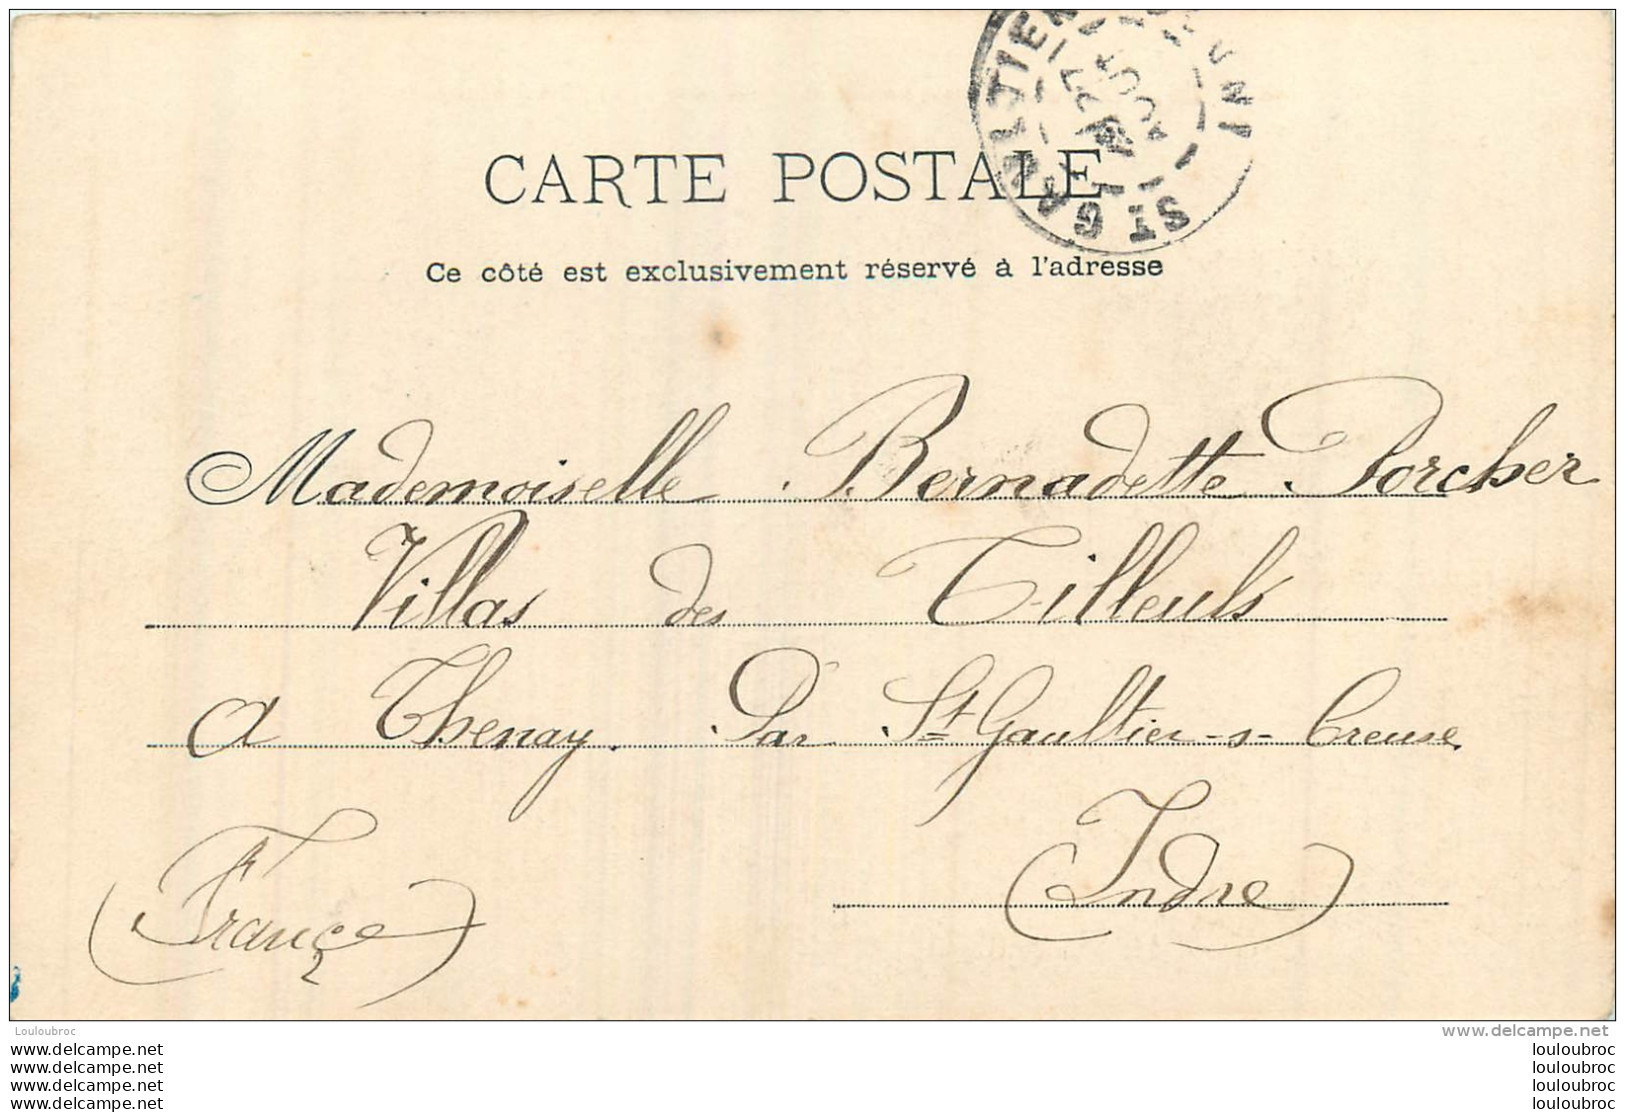 CARTE POSTALE
Ce côté est exclusivement réservé à l'adresse
ST GAULTIER
INDRE
Mademoiselle Bernadette Porcher
Villas des Tilleuls
A Thenay. Par St Gaultier-s-Creuse
(Indre)
(France)
Louloubroc
www.delcampe.net
www.delcampe.net
www.delcampe.net
www.delcampe.net
www.delcampe.net
louloubroc
louloubroc
louloubroc
louloubroc